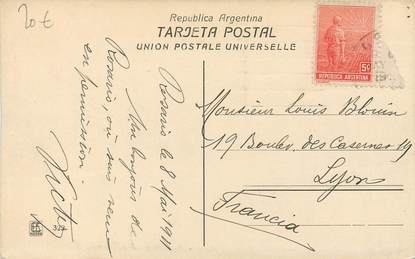 20€
Republica Argentina
TARJETA POSTAL
UNION POSTALE UNIVERSELLE
5c
REPUBLICA ARGENTINA
Rosario le 8 Mai 1911
Un bonjour de
Rosario, où suis venu
en permission
Victor
Monsieur Louis Blouin
19 Boulev. des Casernes 19
Lyon
Francia